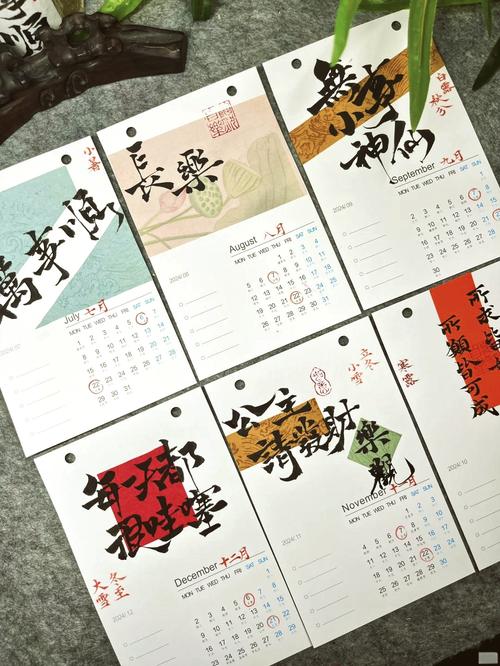 小暑
萬事順
July 七月
MON TUE WED THU FRI SAT SUN
1 2 3 4 5 6 7
8 9 10 11 12 13 14
15 16 17 18 19 20 21
22 23 24 25 26 27 28
29 30 31
長樂
August 八月
MON TUE WED THU FRI SAT SUN
2024/08
1 2 3 4
5 6 7 8 9 10 11
12 13 14 15 16 17 18
19 20 21 22 23 24 25
26 27 28 29 30 31
無事
小神仙
白露
秋分
September 九月
MON TUE WED THU FRI SAT SUN
2024/09
1
2 3 4 5 6 7 8
9 10 11 12 13 14 15
16 17 18 19 20 21 22
23 24 25 26 27 28 29
30
每天都
很哇塞
大雪
冬至
December 十二月
MON TUE WED THU FRI SAT SUN
2024/12
1
2 3 4 5 6 7 8
9 10 11 12 13 14 15
16 17 18 19 20 21 22
23
公主
請發財
樂觀
立冬
小雪
November 十一月
MON TUE WED THU FRI SAT SUN
2024/11
1 2 3
4 5 6 7 8 9 10
11 12 13 14 15 16 17
18 19 20 21 22 23 24
25 26 27 28 29 30
寒露
所求皆
所願皆可成
2024/10